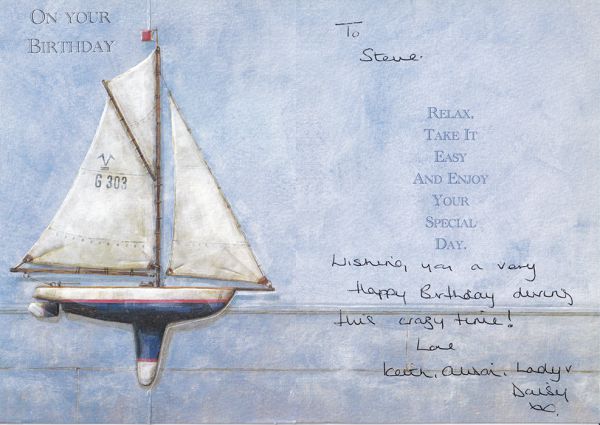 ON YOUR
BIRTHDAY
G 303
To
Steve.
RELAX,
TAKE IT
EASY
AND ENJOY
YOUR
SPECIAL
DAY.
Wishing you a very
Happy Birthday during
this crazy time!
Love
Keith, Alison, Lady &
Daisy
xx.